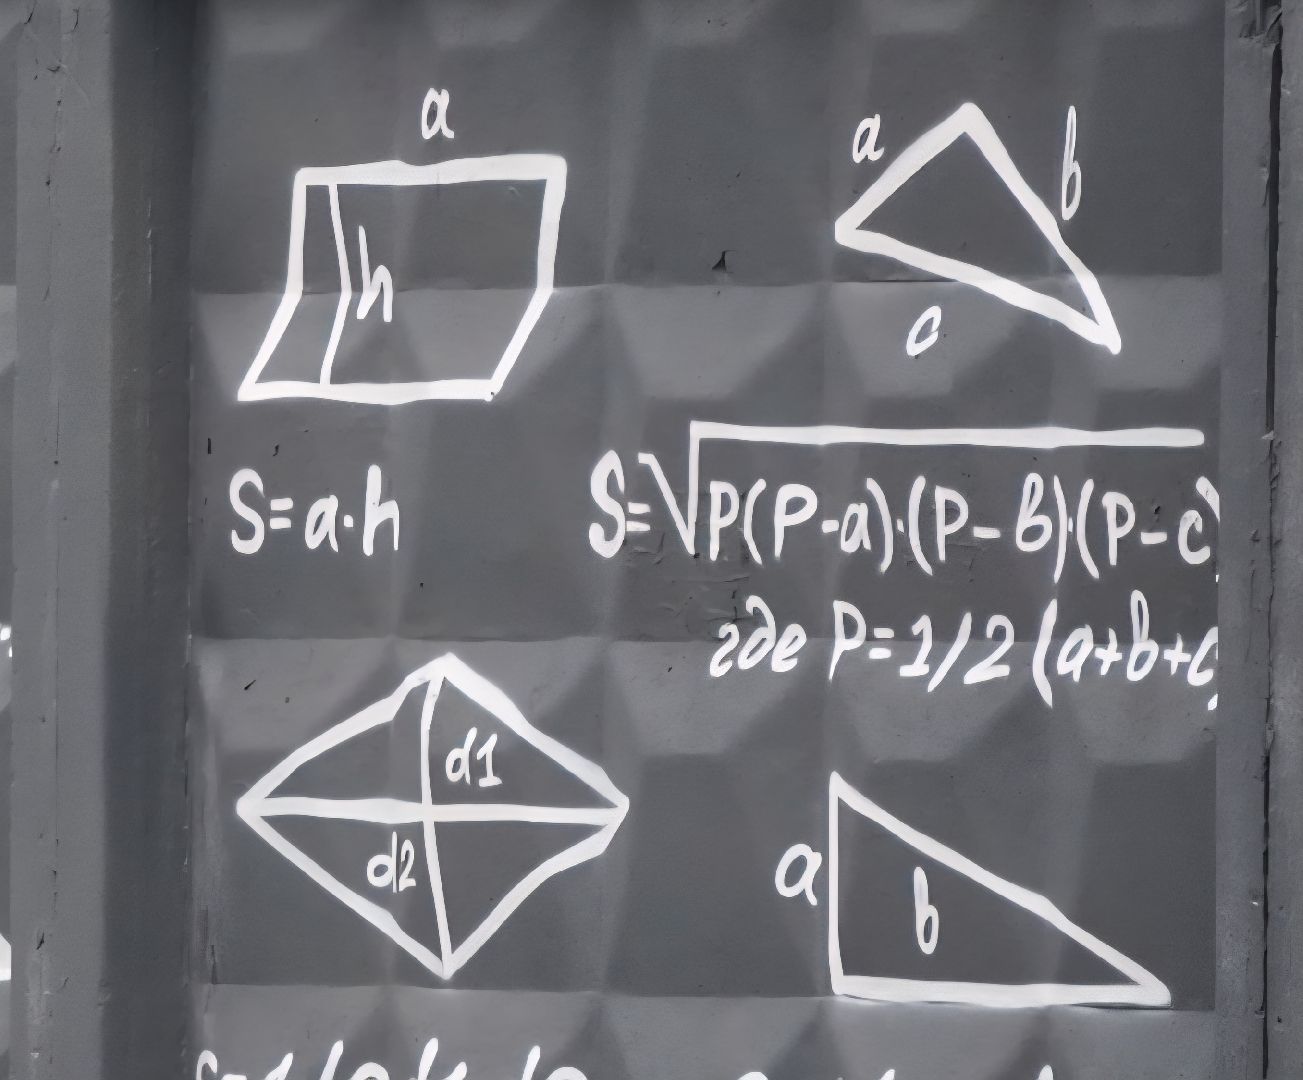 a
h
S=a·h
a
b
c
S=√P(P-a)·(P-b)·(P-c)
где P=1/2(a+b+c)
d1
d2
a
b